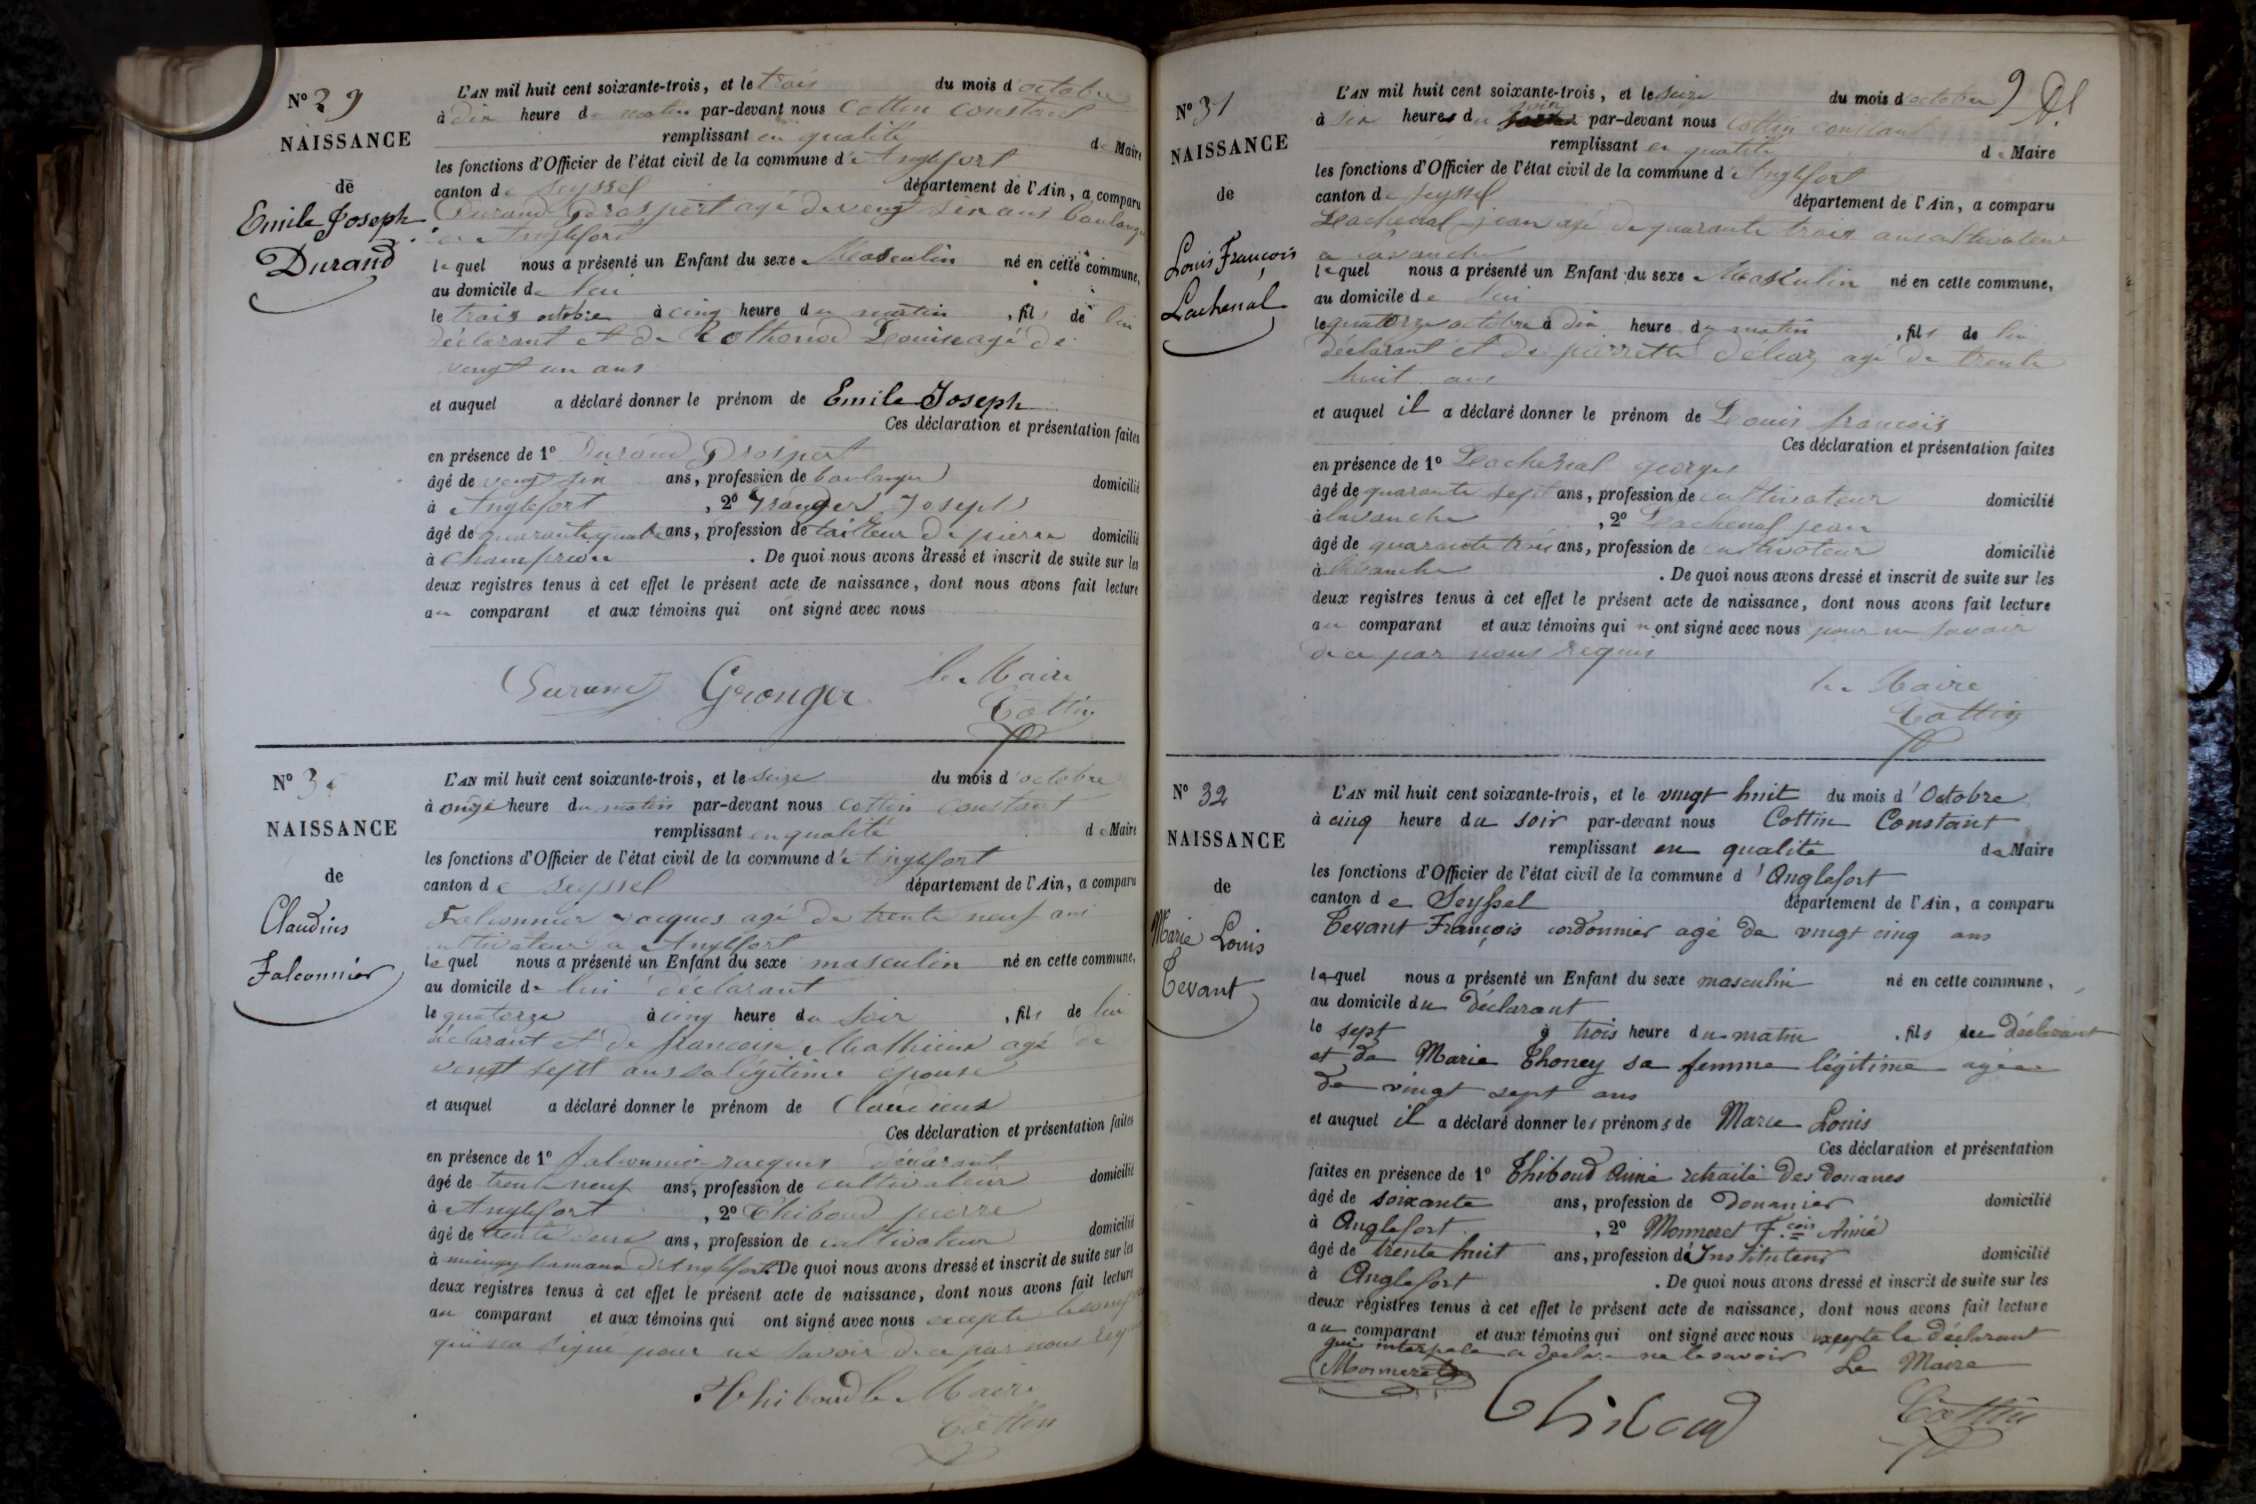 N° 29
NAISSANCE
de
Emile Joseph
Durand
L'AN mil huit cent soixante-trois, et le trois du mois d'octobre
à dix heure du matin par-devant nous Cottin Constant
remplissant en qualité de Maire
les fonctions d'Officier de l'état civil de la commune d'Anglefort
canton de Seyssel département de l'Ain, a comparu
Durand Prospert agé de vengt six ans boulanger
a Anglefort
lequel nous a présenté un Enfant du sexe Masculin né en cette commune,
au domicile de lui
le trois octobre à cinq heure du matin, fils de lui
déclarant et de Rothonod Louise agé de
vengt un ans
et auquel a déclaré donner le prénom de Emile Joseph
Ces déclaration et présentation faites
en présence de 1° Durand Prospert
âgé de vengt six ans, profession de boulanger domicilié
à Anglefort, 2° Granger Joseph
âgé de quarante quatre ans, profession de tailleur de pierre domicilié
à . De quoi nous avons dressé et inscrit de suite sur les
deux registres tenus à cet effet le présent acte de naissance, dont nous avons fait lecture
au comparant et aux témoins qui ont signé avec nous
Durand Gronger le Maire
Cottin
N° 30
NAISSANCE
de
Claudius
Falconnier
L'AN mil huit cent soixante-trois, et le seize du mois d'octobre
à onze heure du matin par-devant nous Cottin Constant
remplissant en qualité de Maire
les fonctions d'Officier de l'état civil de la commune d'Anglefort
canton de Seyssel département de l'Ain, a comparu
Falconnier Jacques agé de trente neuf ans
cultivateur a Anglefort
lequel nous a présenté un Enfant du sexe masculin né en cette commune,
au domicile de lui déclarant
le quatorze à cinq heure du soir, fils de lui
déclarant et de francoise Mathieux agé de
vengt sept ans sa légitime epouse
et auquel a déclaré donner le prénom de Claudius
Ces déclaration et présentation faites
en présence de 1° falconnier Jacques déclarant
âgé de trente neuf ans, profession de cultivateur domicilié
à Anglefort, 2° Thiboud pierre
âgé de trente deux ans, profession de cultivateur domicilié
à d'Anglefort. De quoi nous avons dressé et inscrit de suite sur les
deux registres tenus à cet effet le présent acte de naissance, dont nous avons fait lecture
au comparant et aux témoins qui ont signé avec nous excepte le
qui na signé pour ne savoir de ce par nous
Thiboud le Maire
Cottin
9
N° 31
NAISSANCE
de
Louis François
Lachenal
L'AN mil huit cent soixante-trois, et le seize du mois d'octobre
à six heures du soir par-devant nous Cottin Constant
remplissant en qualité de Maire
les fonctions d'Officier de l'état civil de la commune d'Anglefort
canton de Seyssel département de l'Ain, a comparu
Lachenal jean agé de quarante trois ans cultivateur
a lavanche
lequel nous a présenté un Enfant du sexe Masculin né en cette commune,
au domicile de lui
le quatorze octobre à dix heure du matin, fils de lui
déclarant et de pierrette agé de trente
huit ans
et auquel il a déclaré donner le prénom de Louis françois
Ces déclaration et présentation faites
en présence de 1° Lachenal georges
âgé de quarante sept ans, profession de cultivateur domicilié
à lavanche, 2° Lachenal jean
âgé de quarante trois ans, profession de cultivateur domicilié
à lavanche. De quoi nous avons dressé et inscrit de suite sur les
deux registres tenus à cet effet le présent acte de naissance, dont nous avons fait lecture
au comparant et aux témoins qui n'ont signé avec nous pour ne savoir
de ce par nous requis
le Maire
Cottin
N° 32
NAISSANCE
de
Marie Louis
Tevant
L'AN mil huit cent soixante-trois, et le vingt huit du mois d'Octobre
à cinq heure du soir par-devant nous Cottin Constant
remplissant en qualité de Maire
les fonctions d'Officier de l'état civil de la commune d'Anglefort
canton de Seyssel département de l'Ain, a comparu
Tevant François cordonnier agé de vingt cinq ans
lequel nous a présenté un Enfant du sexe masculin né en cette commune,
au domicile du déclarant
le sept à trois heure du matin, fils du Déclarant
et de Marie Thoney sa femme légitime agée
de vingt sept ans
et auquel il a déclaré donner les prénoms de Marie Louis
Ces déclaration et présentation
faites en présence de 1° Thiboud Aimé retraité des douanes
âgé de soixante ans, profession de Douanier domicilié
à Anglefort, 2° Monneret F.cois Aimé
âgé de trente huit ans, profession d'Instituteur domicilié
à Anglefort. De quoi nous avons dressé et inscrit de suite sur les
deux registres tenus à cet effet le présent acte de naissance, dont nous avons fait lecture
au comparant et aux témoins qui ont signé avec nous excepte le déclarant
qui interpelé a déclaré ne le savoir Le Maire
Monneret
Thiboud Cottin